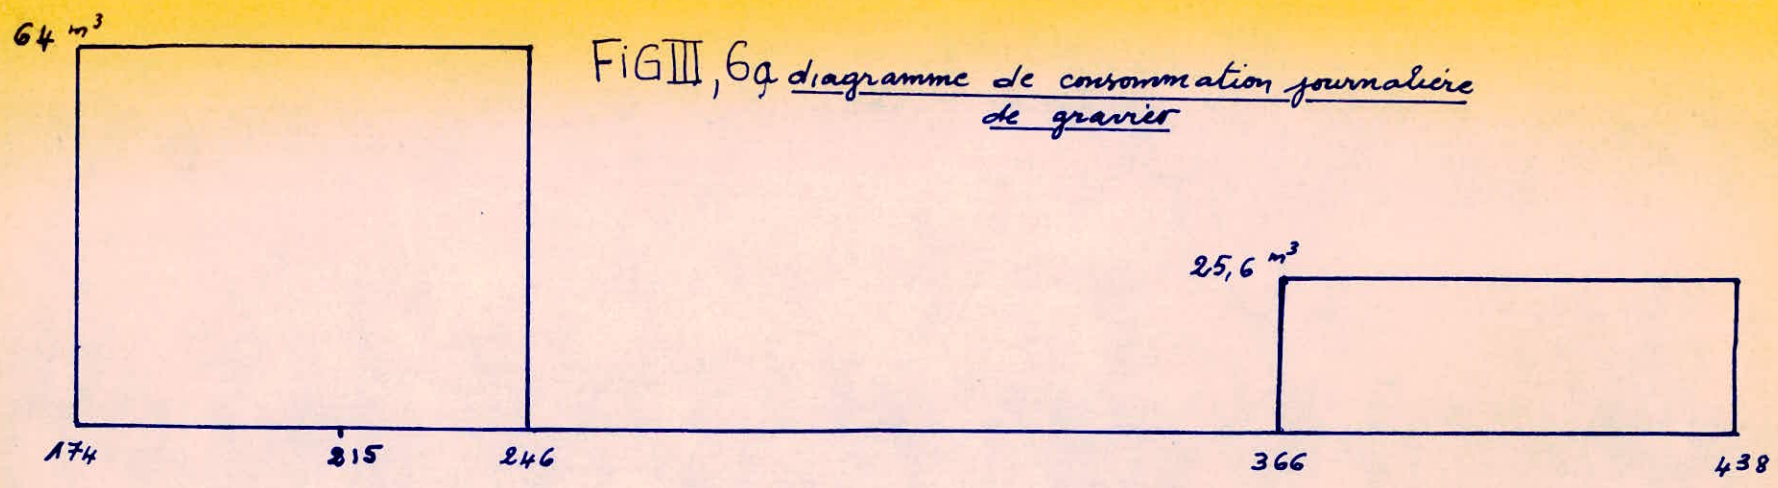 64 m³
FiG III, 6a diagramme de consommation journalière
de gravier
25,6 m³
174 215 246 366 438